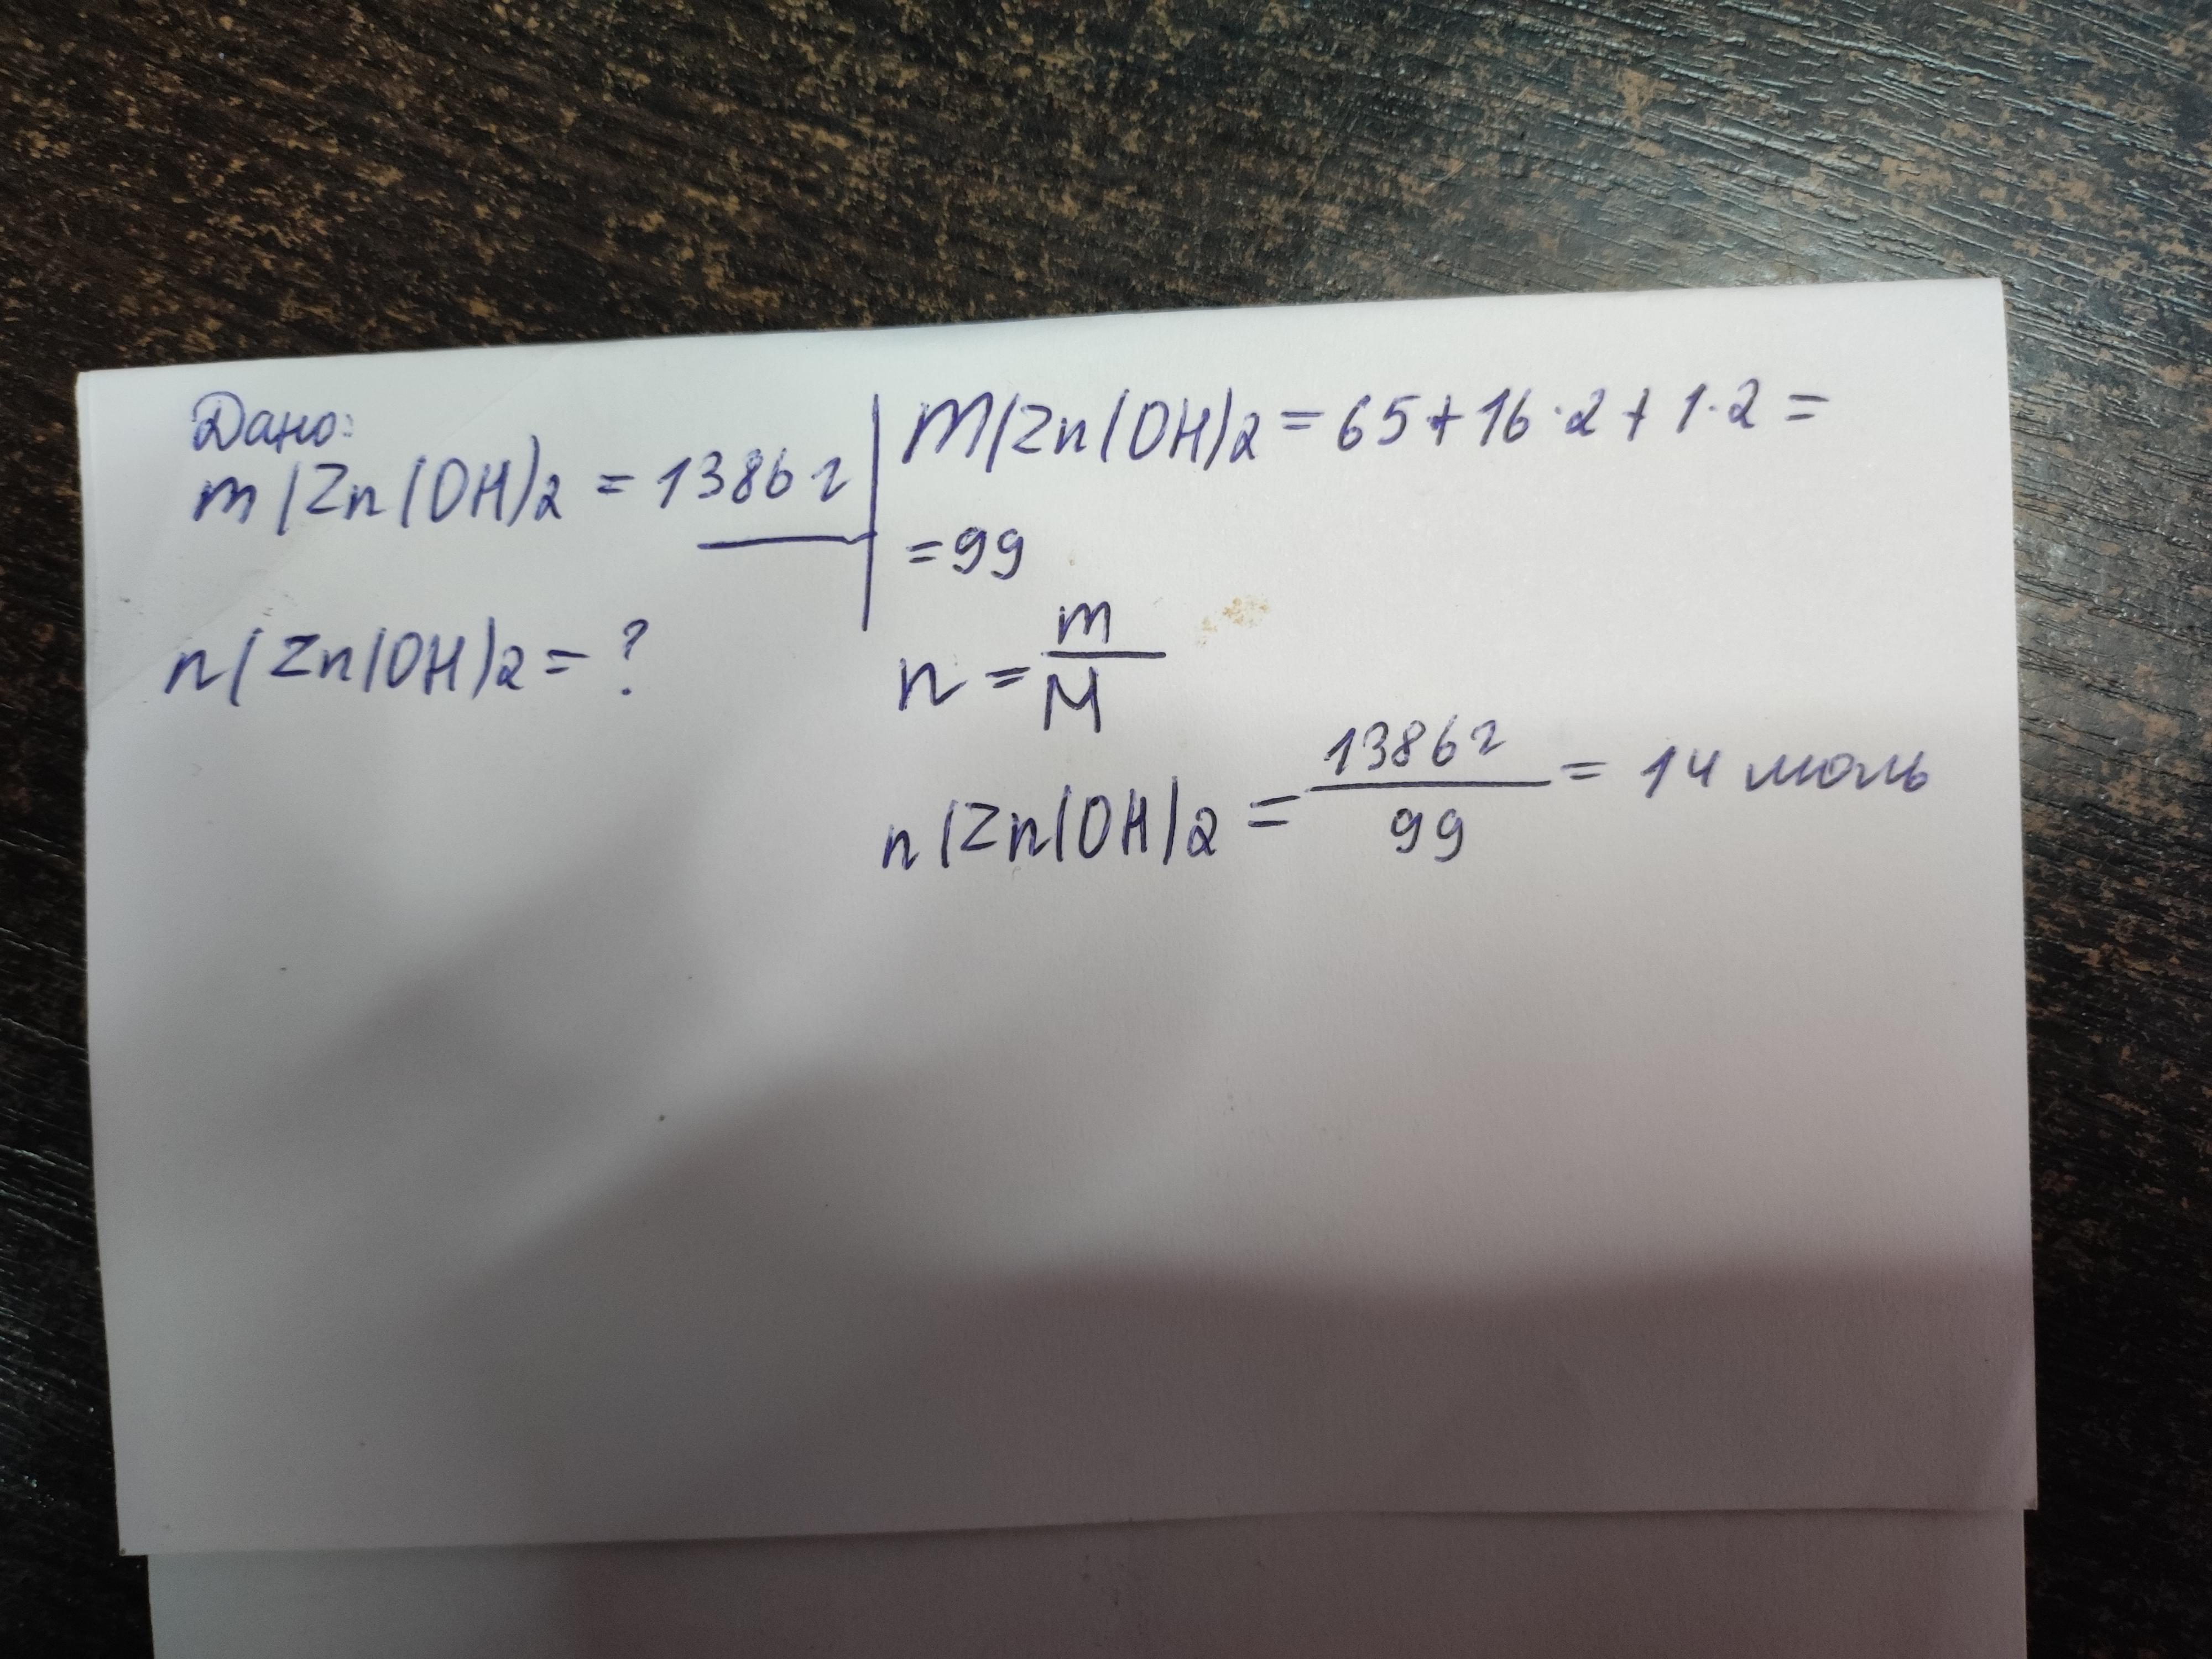 Дано:
m(Zn(OH)2 = 1386 г
n(Zn(OH)2 = ?
M(Zn(OH)2 = 65 + 16·2 + 1·2 =
= 99
n = m/M
n(Zn(OH)2 = 1386 г/99 = 14 моль